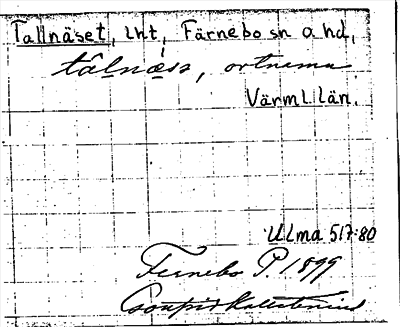 Tallnäset, lht, Färnebo sn o hd,
tålnæsə, ortnamn
Värml. län.
Ulma 517:80
Fernebo P. 1899